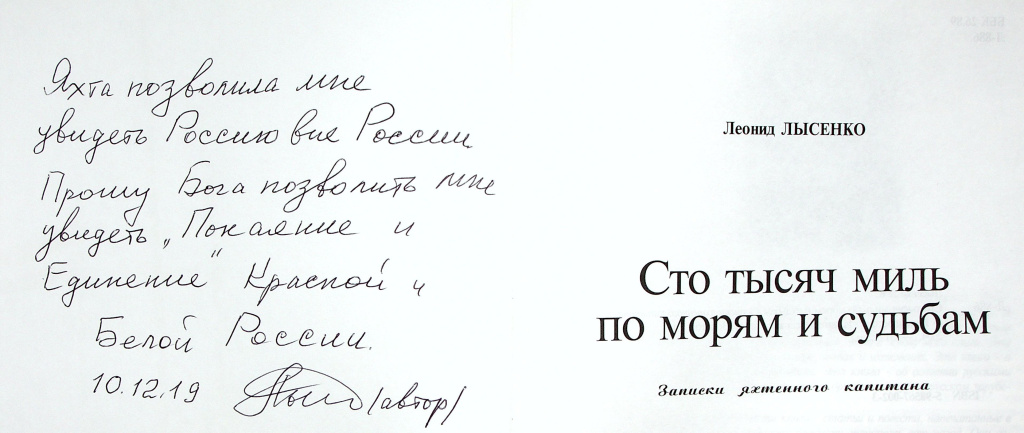 Яхта позволила мне
увидеть Россию вне России
Прошу Бога позволить мне
увидеть „Покаяние и
Единение" Красной и
Белой России.
10.12.19 /автор/
Леонид ЛЫСЕНКО
Сто тысяч миль
по морям и судьбам
Записки яхтенного капитана